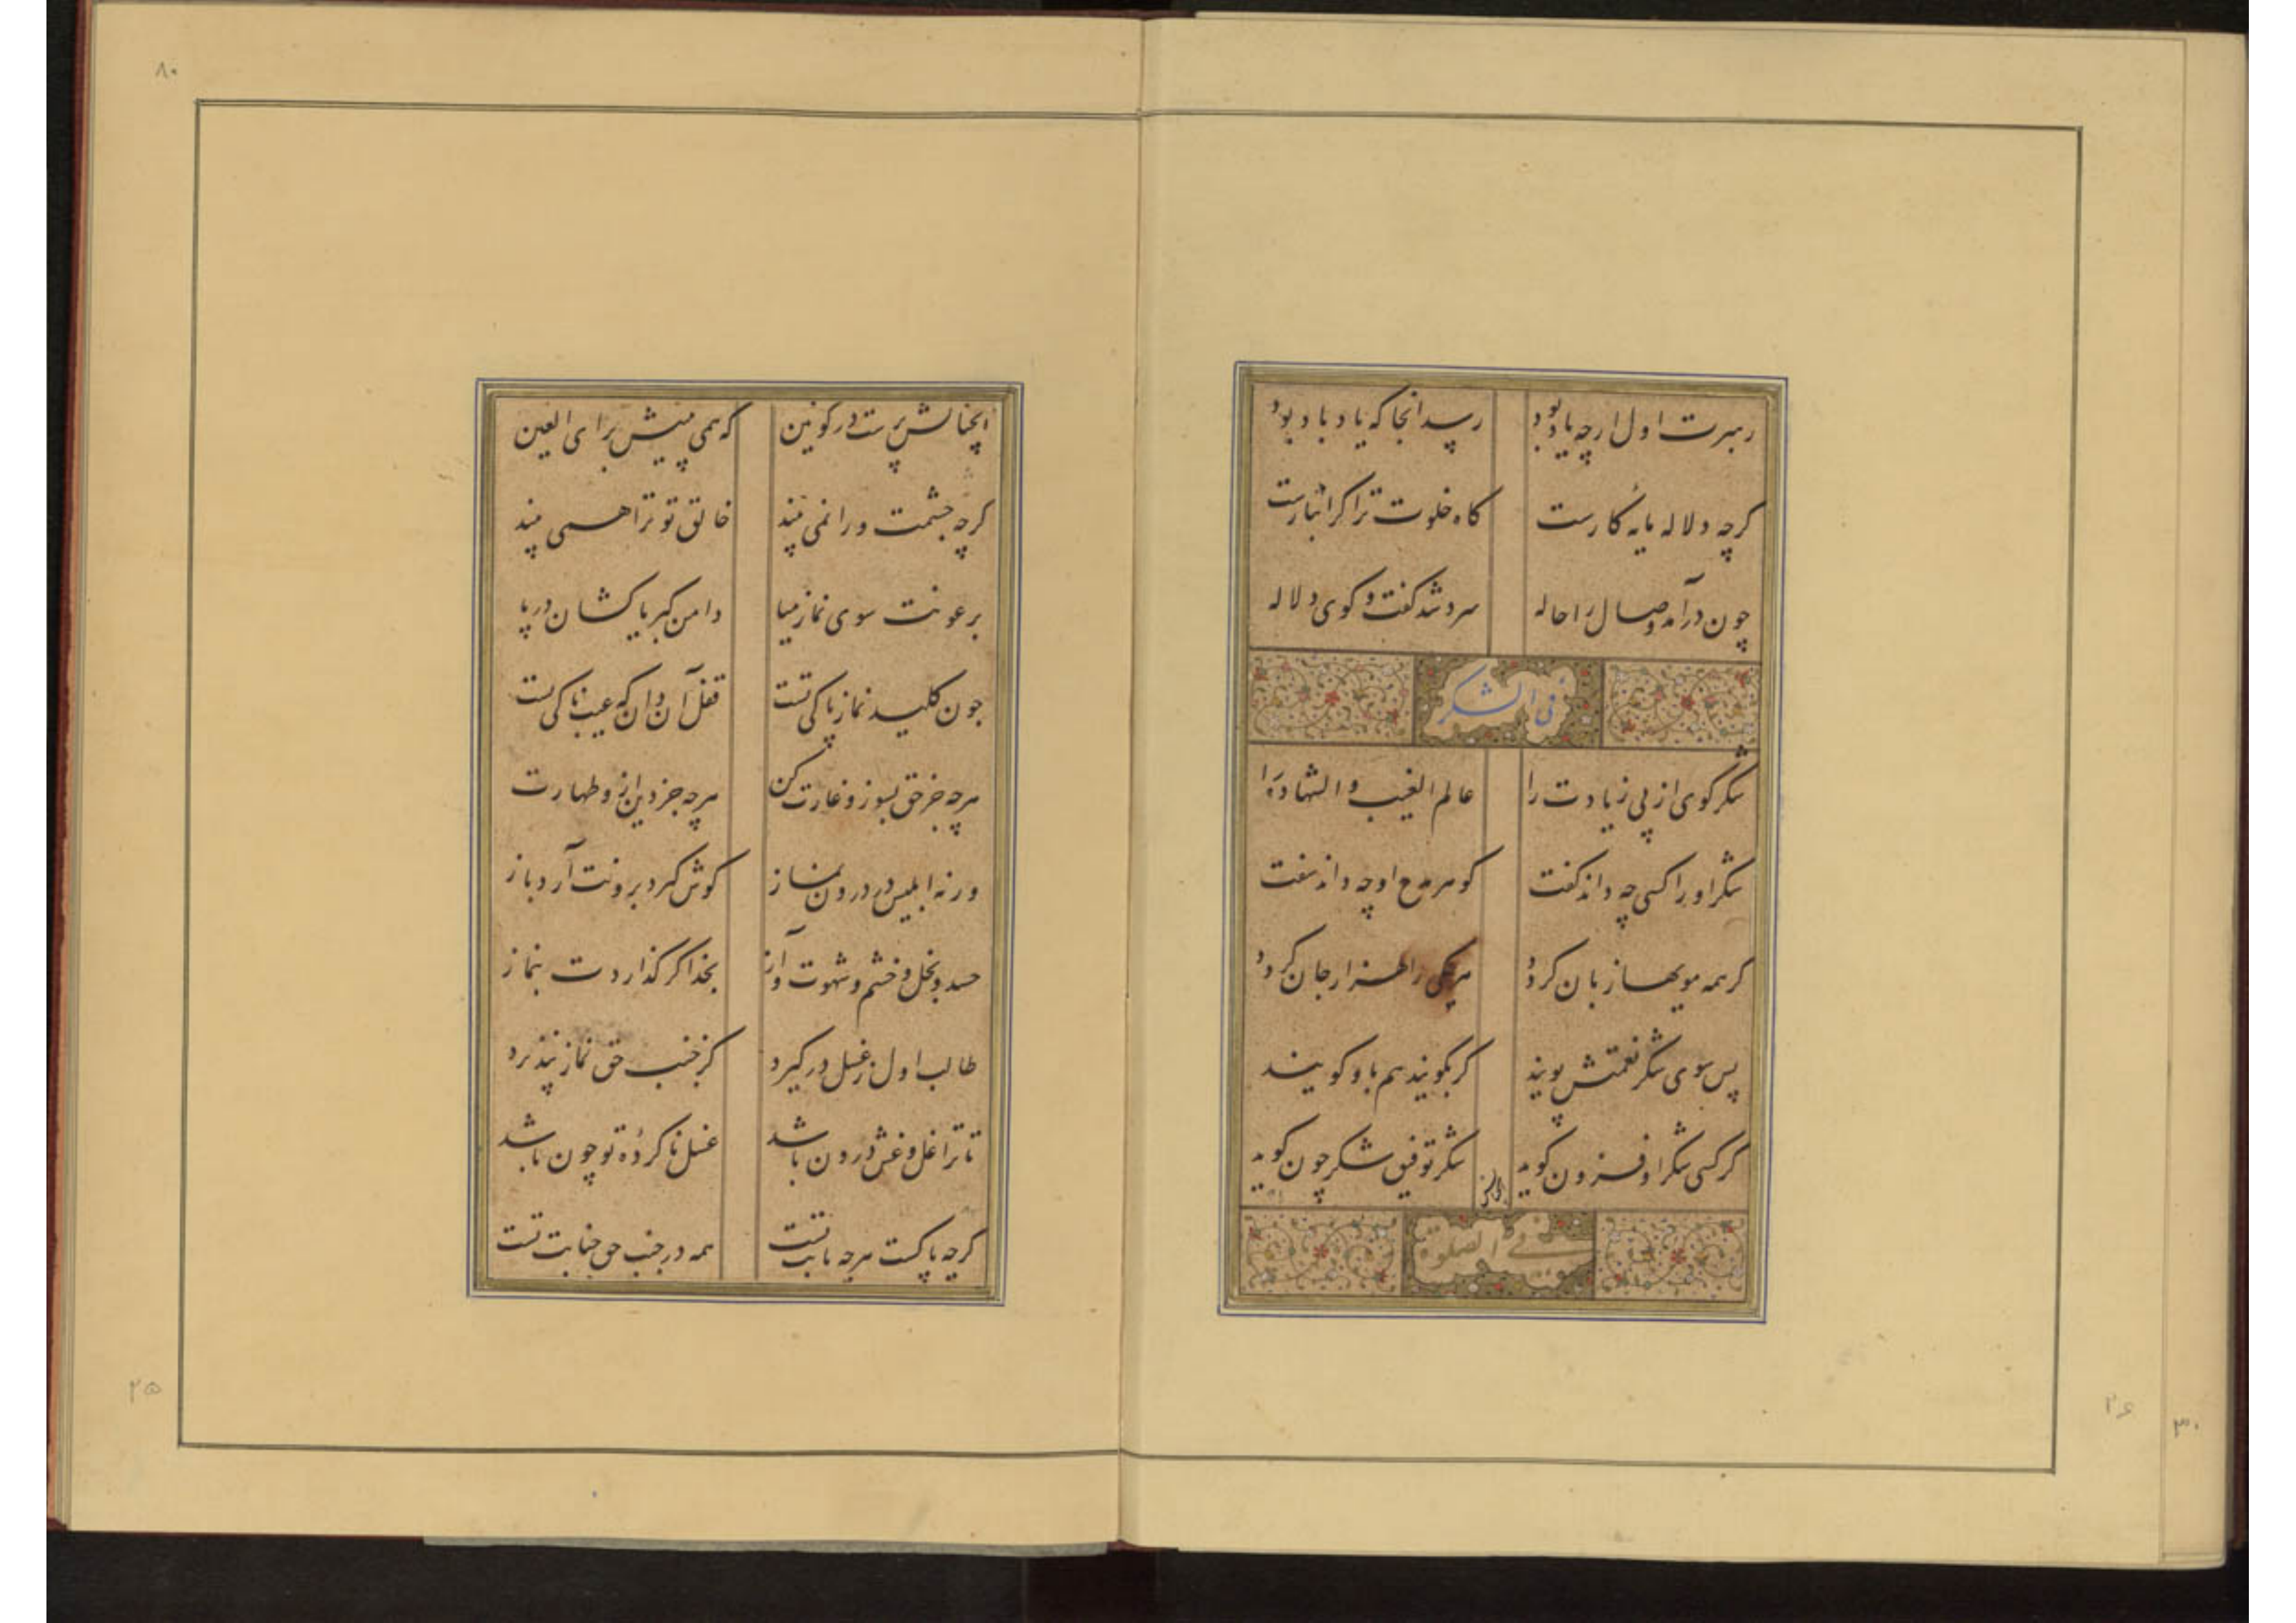 رهبرت اول ارچه یاد بود رسد انجا که یاد باد بود
کرچه دلاله مایه کارست کاه خلوت ترا کرانبارست
چون درآمد وصال را حاله سرد شد کفت و کوی دلاله
فی الشکر
شکر کوی از پی زیادت را عالم الغیب و الشهادة را
شکر او را کسی چه داند کفت کوهر مدح او چه داند سفت
کر همه مویها زبان کردد هر یکی را هزار جان کردد
پس سوی شکر نعمتش پویند کر بکویند هم باو کویند
کر کسی شکر او فزون کوید شکر توفیق شکر چون کوید
فی الصلوة
انچنانش پرست در کونین که همی بینیش برای العین
کرچه چشمت ورا نمی بیند خالق تو ترا همی بیند
برعونت سوی نماز میا دامن کبریا کشان در پا
جون کلید نماز پاکی تست قفل آن دان که عیب ناکی تست
هرچه جز حق بسوز و غارت کن هرچه جز دین ازو طهارت
ورنه ابلیس در درون نماز کوش کیرد برونت آرد باز
حسد و بخل و خشم و شهوت و آز بخدا کر کذاردت بنماز
طالب اول ز غسل در کیرد کز جنب حق نماز نپذیرد
تا ترا غل و غش درون باشد غسل ناکرده تو چون باشد
کرچه پاکست هرچه بابت تست همه در جنب حق جنابت تست
۸۰
۲۵
۲۶
۳۰